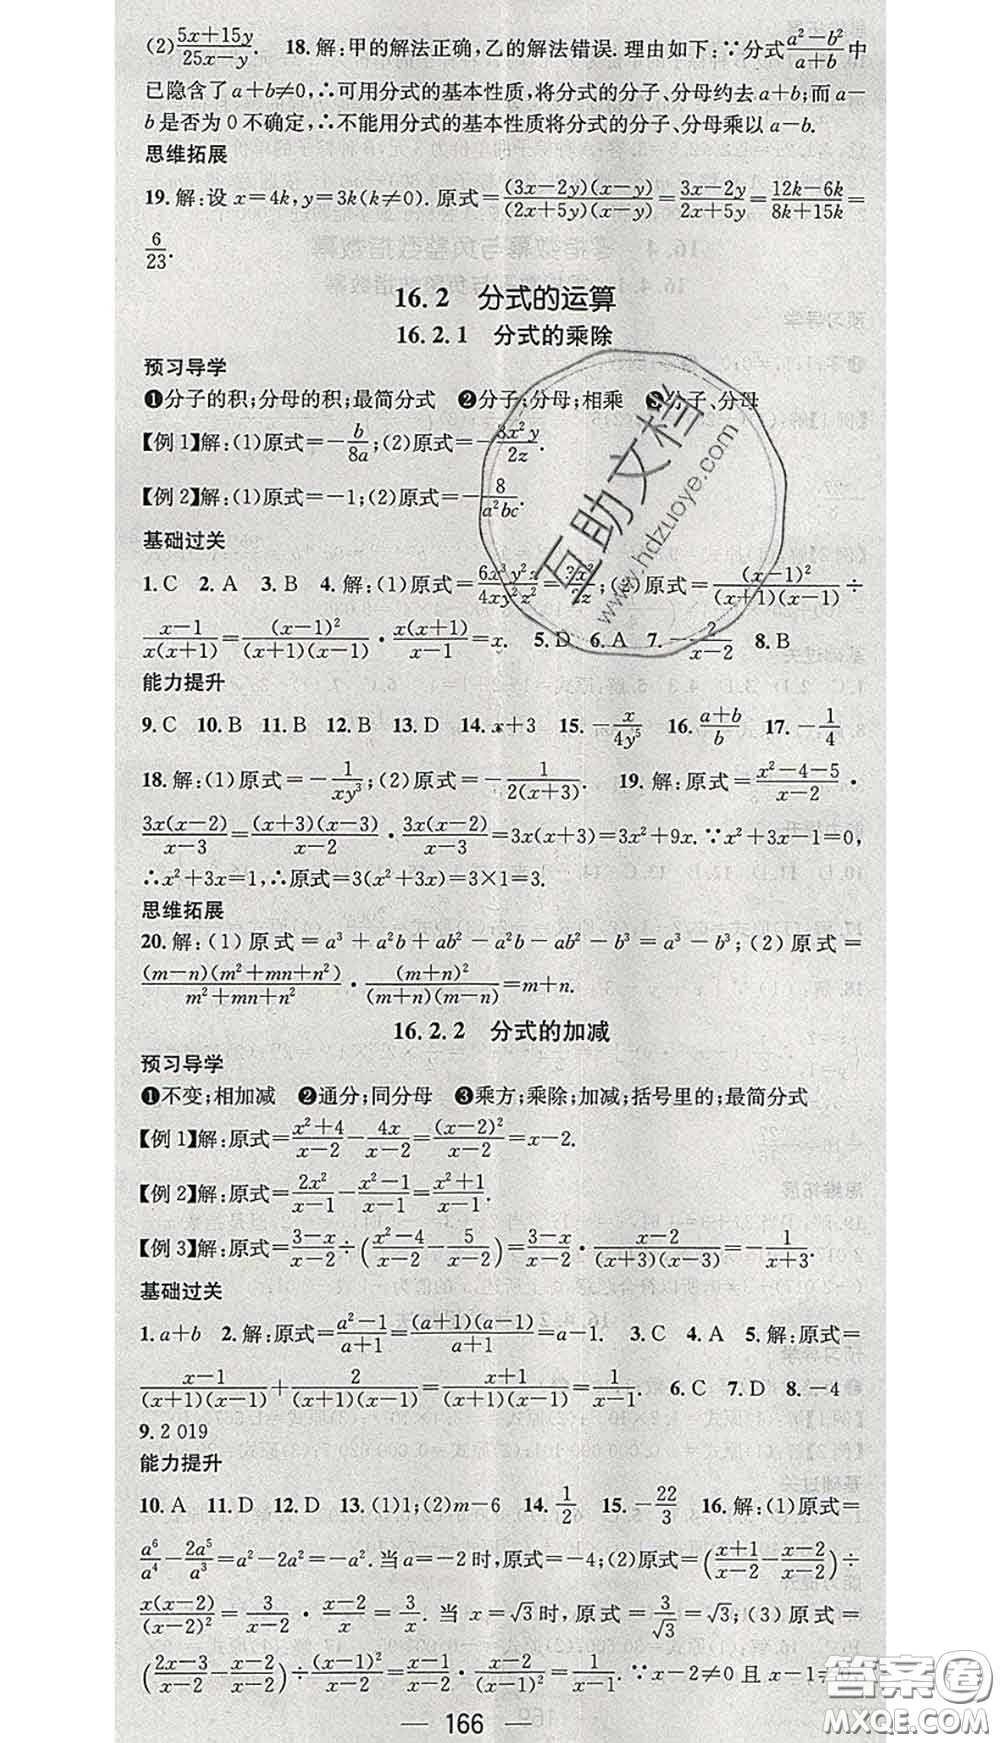 (2)(5x+15y)/(25x−y). 18.解:甲的解法正确,乙的解法错误.理由如下:∵分式(a²−b²)/(a+b)中
已隐含了a+b≠0,∴可用分式的基本性质,将分式的分子、分母约去a+b;而a−
b是否为0不确定,∴不能用分式的基本性质将分式的分子、分母乘以a−b.
思维拓展
19.解:设x=4k,y=3k(k≠0).原式=(3x−2y)(x−y)/(2x+5y)(x−y)=(3x−2y)/(2x+5y)=(12k−6k)/(8k+15k)=
6/23.
16.2 分式的运算
16.2.1 分式的乘除
预习导学
❶分子的积;分母的积;最简分式 ❷分子;分母;相乘 ❸分子、分母
【例1】解:(1)原式=−b/(8a);(2)原式=−3x²y/(2z).
【例2】解:(1)原式=−1;(2)原式=−8/(a²bc).
基础过关
1.C 2.A 3.B 4.解:(1)原式=6x³y²z/(4xy²z²)=3x²/(2z);(2)原式=(x−1)²/((x+1)(x−1))÷
(x−1)/(x(x+1))=(x−1)²/((x+1)(x−1))·x(x+1)/(x−1)=x. 5.D 6.A 7.−2/(x−2) 8.B
能力提升
9.C 10.B 11.B 12.B 13.D 14.x+3 15.−x/(4y⁵) 16.(a+b)/b 17.−1/4
18.解:(1)原式=−1/(xy³);(2)原式=−1/(2(x+3)). 19.解:原式=(x²−4−5)/(x−2)·
3x(x−2)/(x−3)=(x+3)(x−3)/(x−2)·3x(x−2)/(x−3)=3x(x+3)=3x²+9x.∵x²+3x−1=0,
∴x²+3x=1,∴原式=3(x²+3x)=3×1=3.
思维拓展
20.解:(1)原式=a³+a²b+ab²−a²b−ab²−b³=a³−b³;(2)原式=
(m−n)(m²+mn+n²)/(m²+mn+n²)·(m+n)²/((m+n)(m−n))=m+n.
16.2.2 分式的加减
预习导学
❶不变;相加减 ❷通分;同分母 ❸乘方;乘除;加减;括号里的;最简分式
【例1】解:原式=(x²+4)/(x−2)−4x/(x−2)=(x−2)²/(x−2)=x−2.
【例2】解:原式=2x²/(x−1)−(x²−1)/(x−1)=(x²+1)/(x−1).
【例3】解:原式=(3−x)/(x−2)÷((x²−4)/(x−2)−5/(x−2))=(3−x)/(x−2)·(x−2)/((x+3)(x−3))=−1/(x+3).
基础过关
1.a+b 2.解:原式=(a²−1)/(a+1)=(a+1)(a−1)/(a+1)=a−1. 3.C 4.A 5.解:原式=
(x−1)/((x+1)(x−1))+2/((x+1)(x−1))=(x+1)/((x+1)(x−1))=1/(x−1). 6.C 7.D 8.−4
9.2 019
能力提升
10.A 11.D 12.D 13.(1)1;(2)m−6 14.1/2 15.−22/3 16.解:(1)原式=
a⁶/a⁴−2a⁵/a³=a²−2a²=−a².当a=−2时,原式=−4;(2)原式=((x+1)/(x−2)−(x−2)/(x−2))÷
x(x−2)/(x−2)²=3/(x−2)·(x−2)/x=3/x.当x=√3时,原式=3/√3=√3;(3)原式=
((2x−3)/(x−2)−(x−2)/(x−2))÷(x−1)²/(x−2)=(x−1)/(x−2)·(x−2)/(x−1)²=1/(x−1).∵x−2≠0且x−1≠0,
— 166 —
互助文档
www.hdzuoye.com
答案圈
MXQE.COM